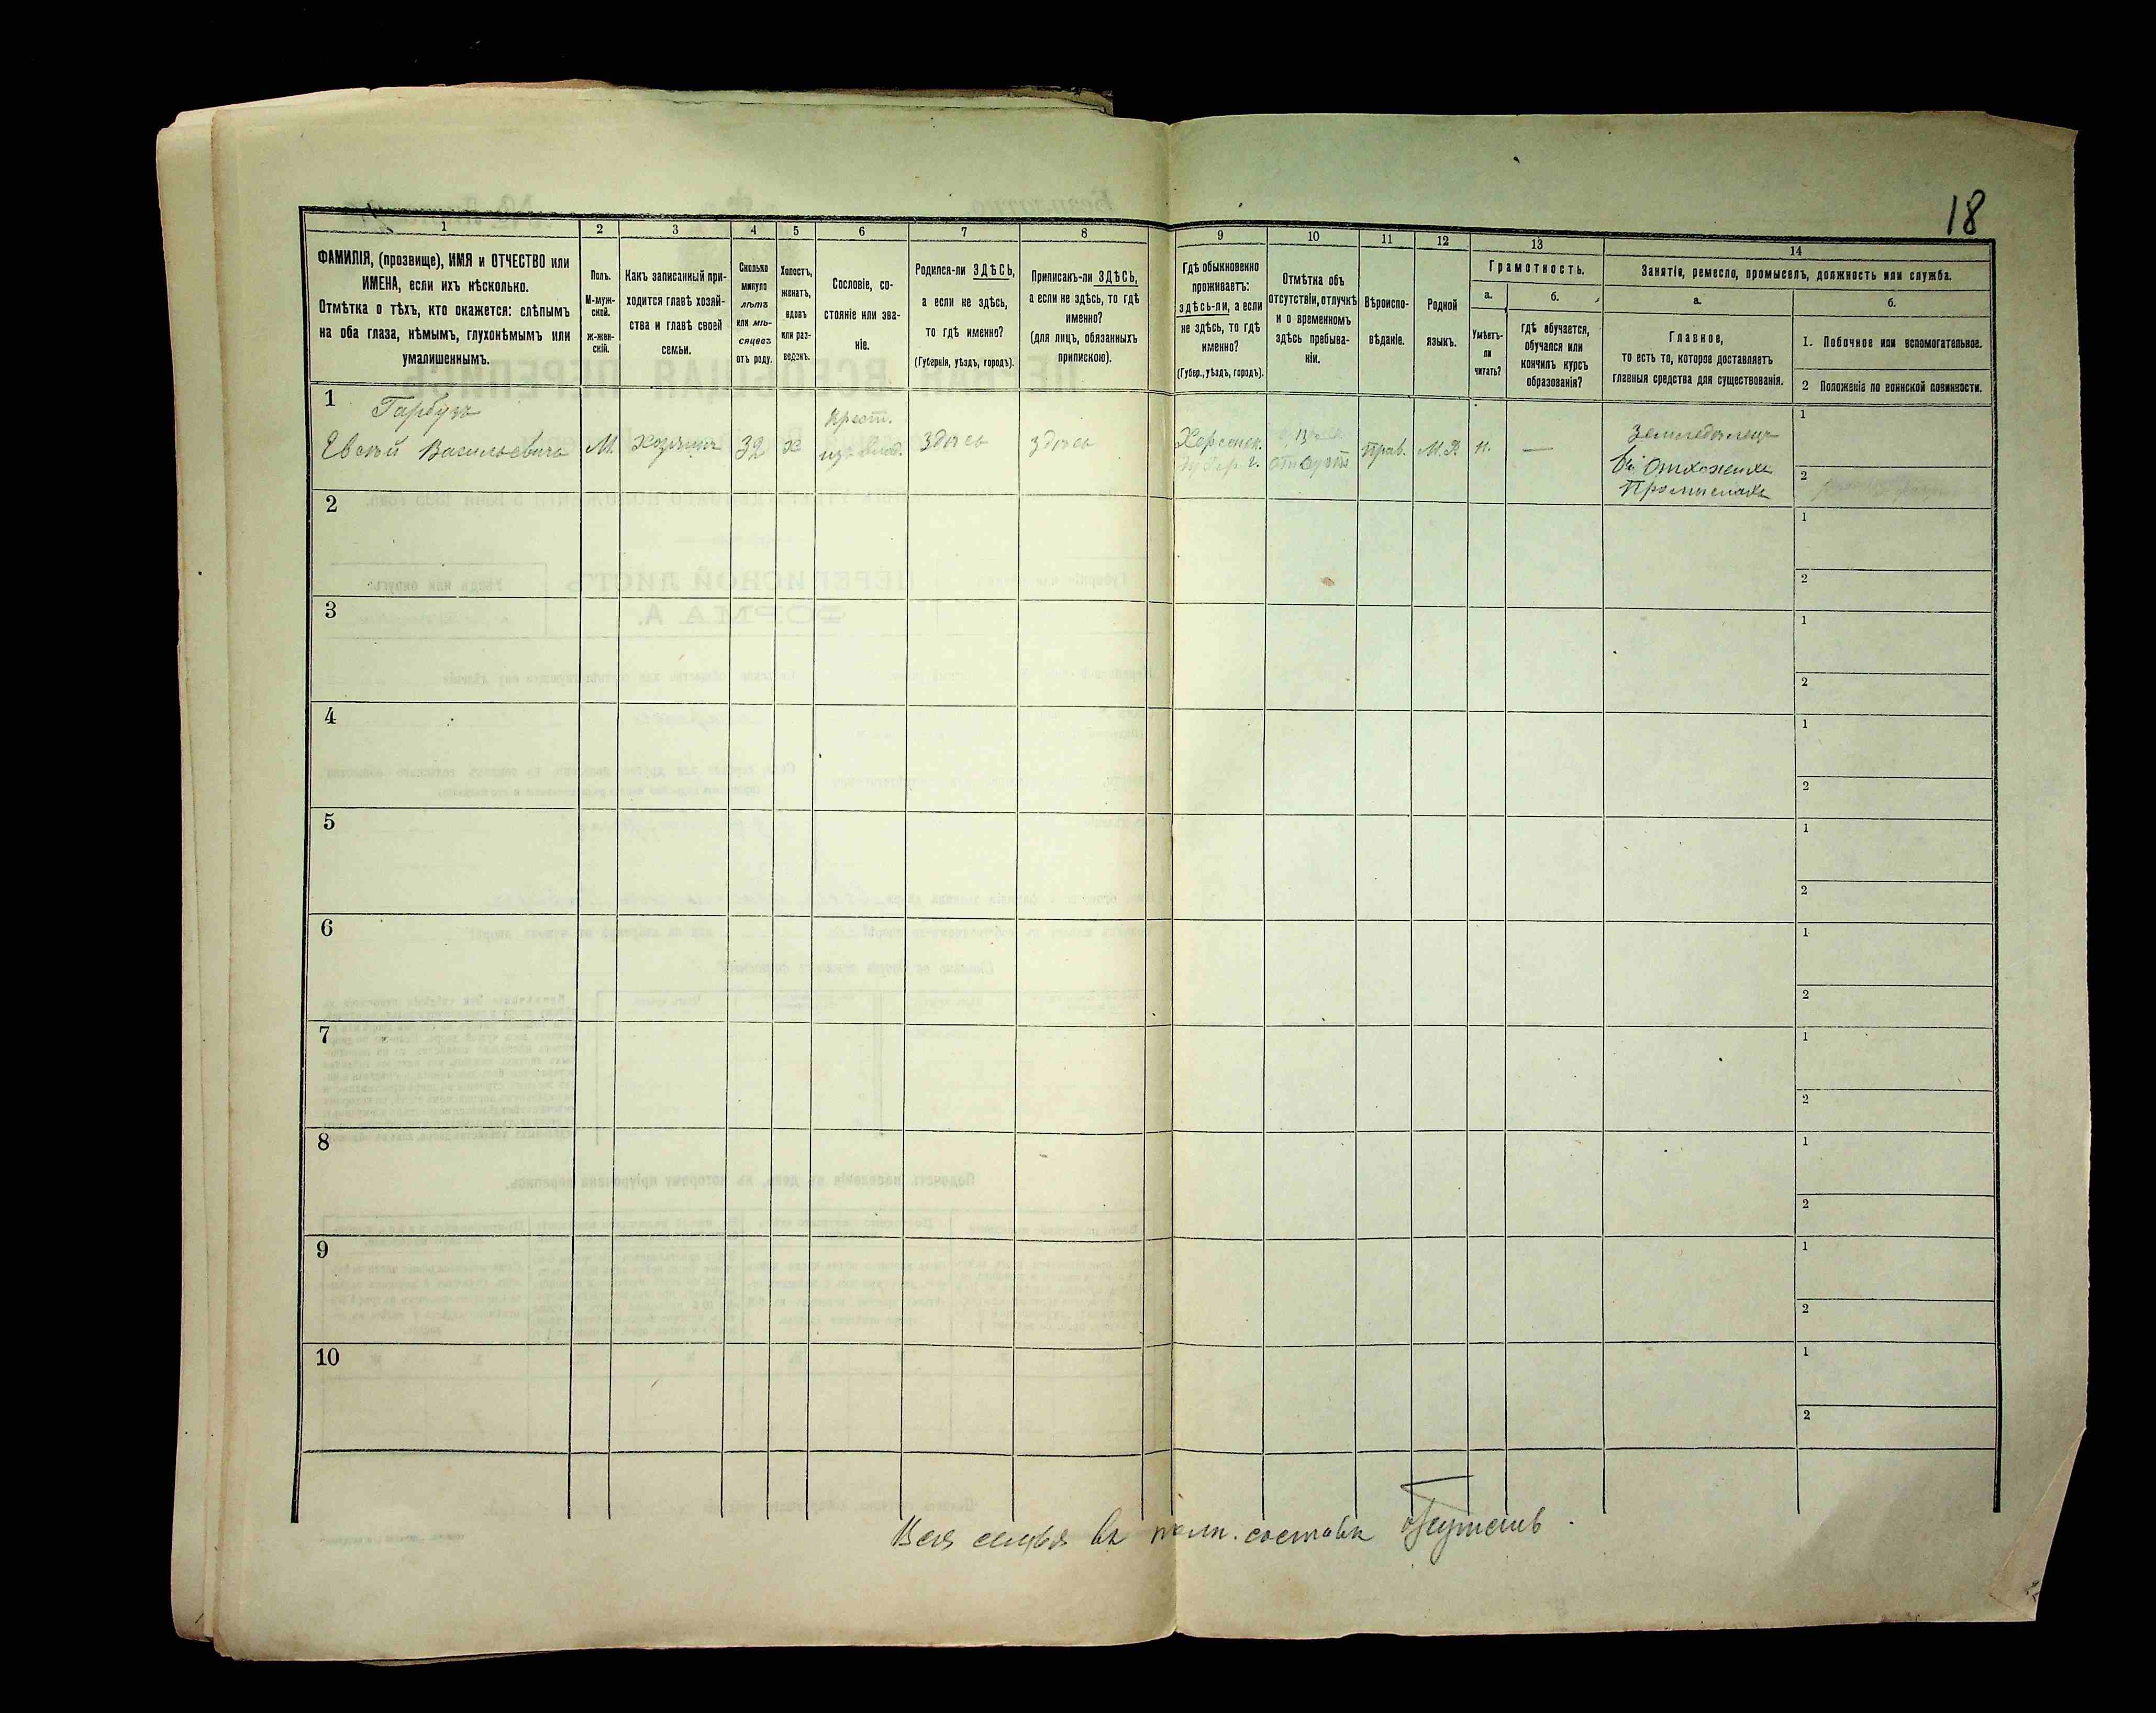 18
1
ФАМИЛІЯ, (прозвище), ИМЯ и ОТЧЕСТВО или
ИМЕНА, если ихъ нѣсколько.
Отмѣтка о тѣхъ, кто окажется: слѣпымъ
на оба глаза, нѣмымъ, глухонѣмымъ или
умалишеннымъ.
2
Полъ.
М-муж-
ской.
ж-жен-
скій.
3
Какъ записанный при-
ходится главѣ хозяй-
ства и главѣ своей
семьи.
4
Сколько
минуло
лѣтъ
или мѣ-
сяцевъ
отъ роду.
5
Холостъ,
женатъ,
вдовъ
или раз-
веденъ.
6
Сословіе, со-
стояніе или зва-
ніе.
7
Родился-ли ЗДѢСЬ,
а если не здѣсь,
то гдѣ именно?
(Губернія, уѣздъ, городъ).
8
Приписанъ-ли ЗДѢСЬ,
а если не здѣсь, то гдѣ
именно?
(для лицъ, обязанныхъ
припискою).
9
Гдѣ обыкновенно
проживаетъ:
здѣсь-ли, а если
не здѣсь, то гдѣ
именно?
(Губер., уѣздъ, городъ).
10
Отмѣтка объ
отсутствіи, отлучкѣ
и о временномъ
здѣсь пребыва-
ніи.
11
Вѣроиспо-
вѣданіе.
12
Родной
языкъ.
13
Грамотность.
а.
Умѣетъ-
ли
читать?
б.
Гдѣ обучается,
обучался или
кончилъ курсъ
образованія?
14
Занятіе, ремесло, промыселъ, должность или служба.
а.
Главное,
то есть то, которое доставляетъ
главныя средства для существованія.
б.
1. Побочное или вспомогательное.
2 Положеніе по воинской повинности.
1
Гарбузъ
Евсѣй Васильевичъ
М.
Хозяинъ
32
Х
Крест.
изъ влад.
Здѣсь
Здѣсь
Херсонск.
губер.
отсутст
прав.
М.Р
н.
—
Земледѣлецъ
въ отхожихъ
Промыслахъ
1
2
2
1
2
3
1
2
4
1
2
5
1
2
6
1
2
7
1
2
8
1
2
9
1
2
10
1
2
Вся семья въ полн. составѣ отсутств.